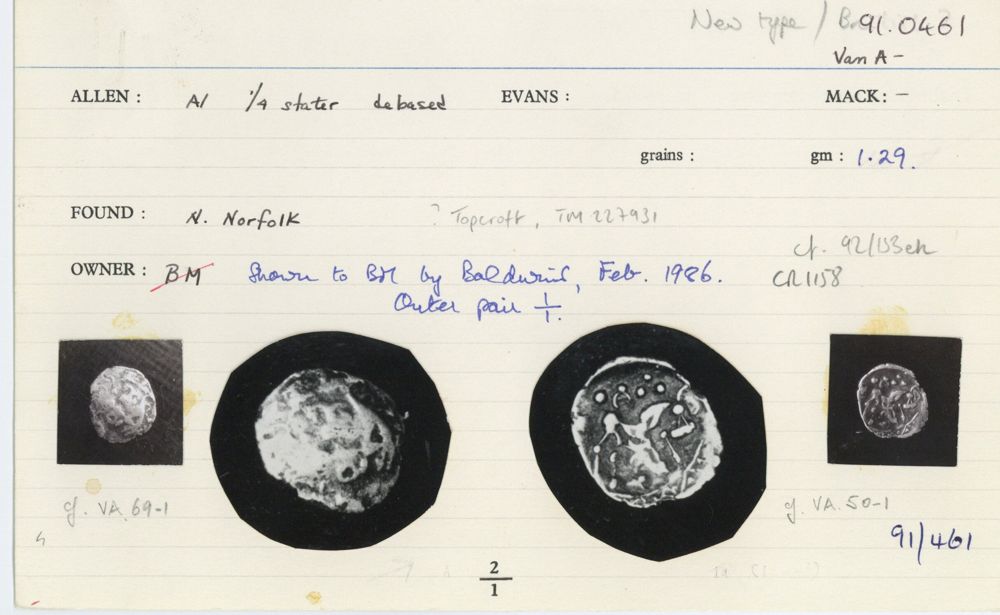 New type / 91.0461
Van A -
ALLEN : 1/4 stater debased EVANS : MACK: -
grains : gm : 1.29.
FOUND : N. Norfolk ? Topcroft, TM 227931
cf. 92/
OWNER : BM Shown to BM by Baldwins, Feb. 1986. CR1158
Outer pair 1/1.
cf. VA. 69-1
cf. VA. 50-1
91/461
2
1